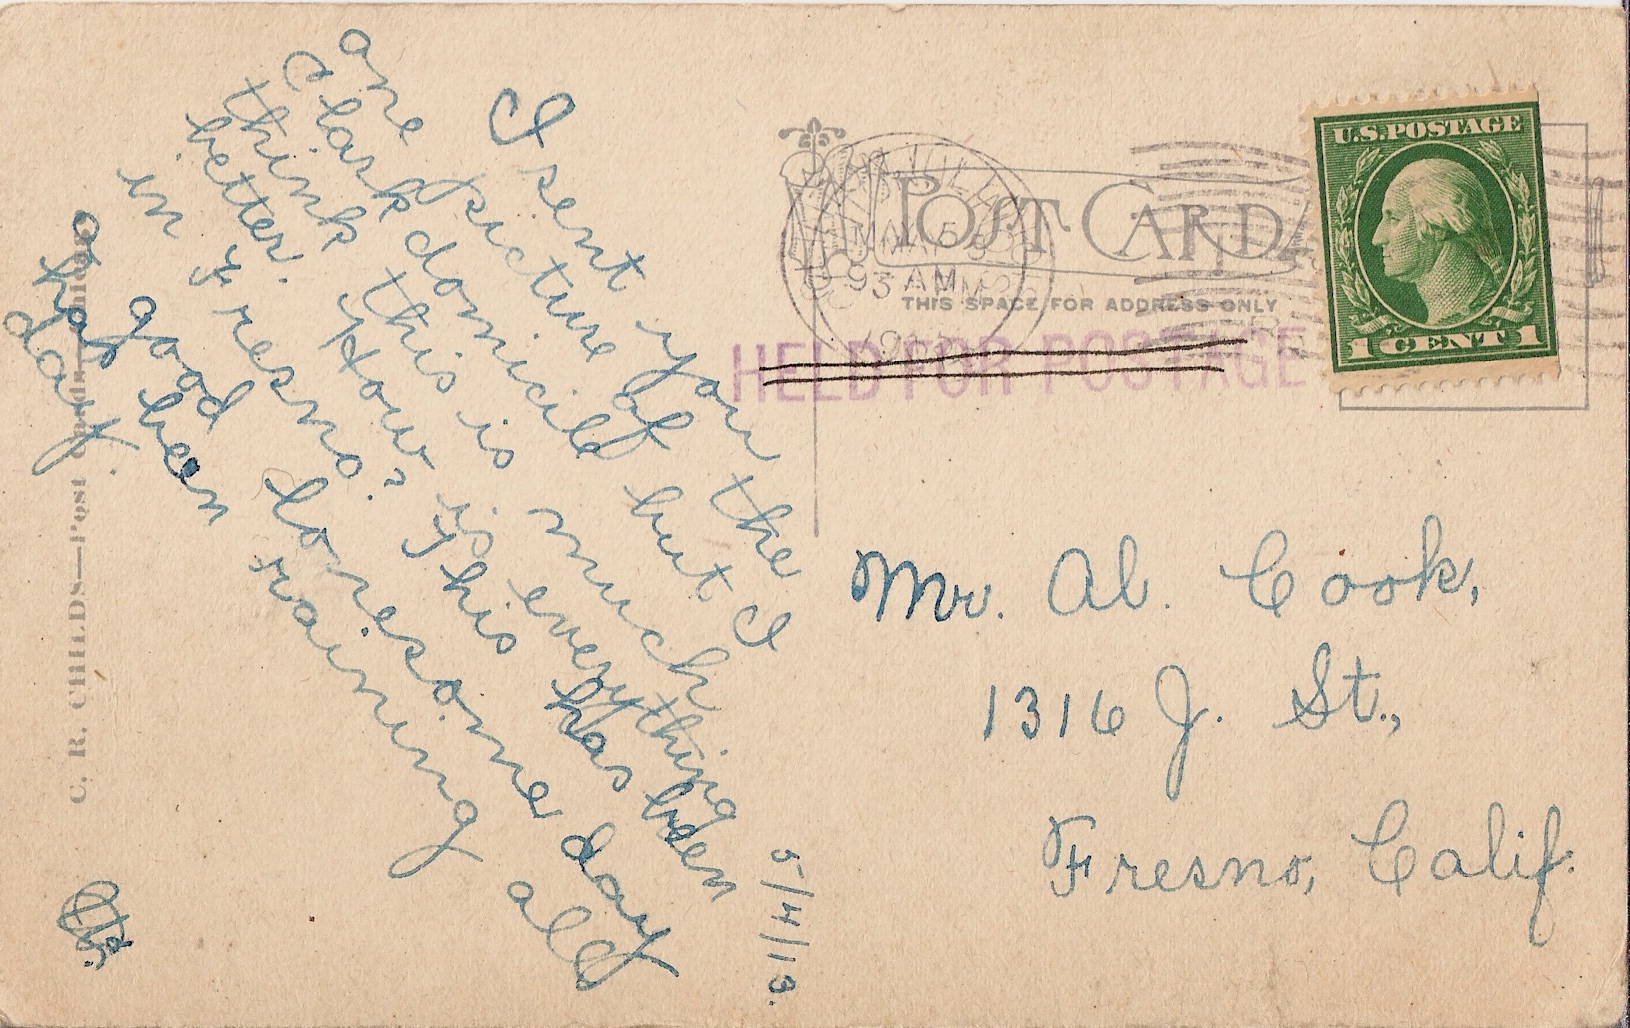 I sent you
one picture of the
Clark domicile but I
think this is much
better. How is everything
in Fresno? This has been
a good lonesome day
has been raining all
day.
5/4/13.
POST CARD
THIS SPACE FOR ADDRESS ONLY
HELD FOR POSTAGE
U.S. POSTAGE
1 CENT 1
Mr. Al. Cook,
1316 J. St.,
Fresno, Calif.
C. R. CHILDS—Post Cards—Chicago